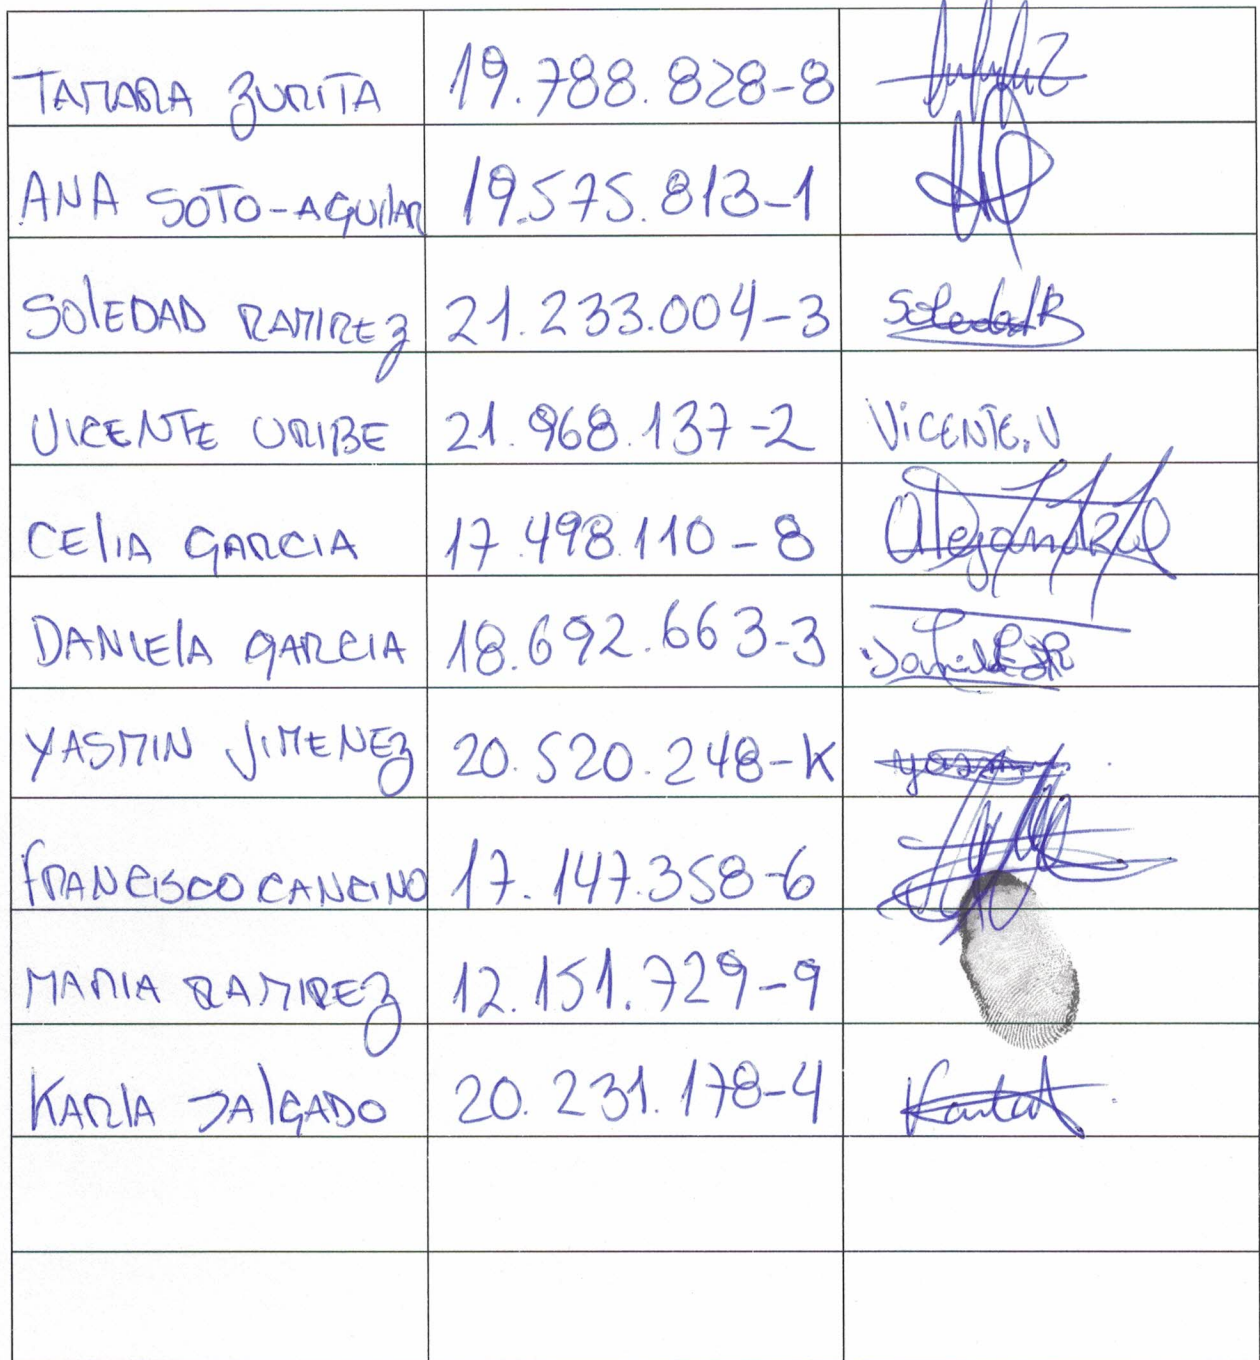 TAMARA ZURITA 19.788.828-8
ANA SOTO-AGUILAR 19.575.813-1
SOLEDAD RAMIREZ 21.233.004-3 Soledad R
VICENTE URIBE 21.968.137-2 VICENTE.U
CELIA GARCIA 17.498.110-8
DANIELA GARCIA 18.692.663-3
YASMIN JIMENEZ 20.520.248-K
FRANCISCO CANCINO 17.147.358-6
MARIA RAMIREZ 12.151.729-9
KARLA SALGADO 20.231.178-4